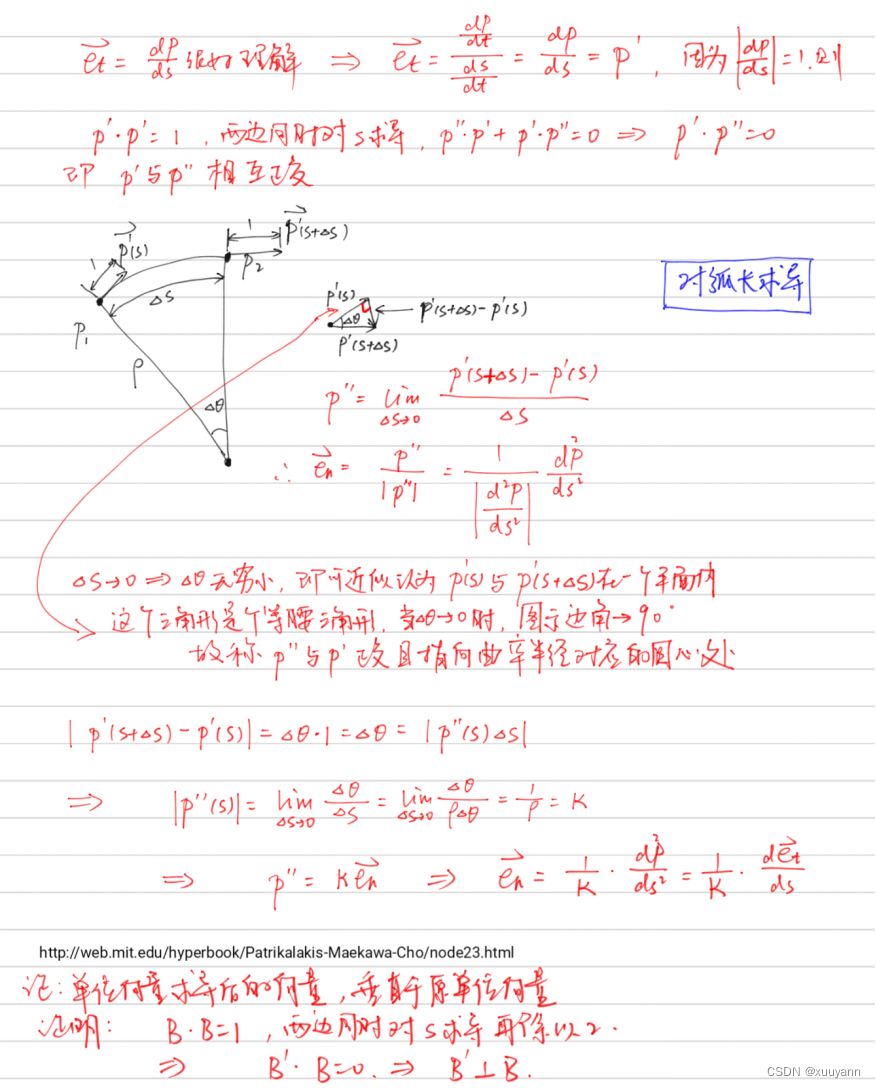 e⃗t = dp/ds 很好理解 ⇒ e⃗t = (dp/dt)/(ds/dt) = dp/ds = p', 因为 |dp/ds| = 1. 则
p'·p' = 1, 两边同时对 s 求导, p''·p' + p'·p'' = 0 ⇒ p'·p'' = 0
即 p' 与 p'' 相互正交
1 p⃗'(s)
1 p⃗'(s+Δs)
P1
Δs
P2
ρ
Δθ
p'(s)
Δθ
p'(s+Δs)-p'(s)
p'(s+Δs)
对弧长求导
p'' = lim Δs→0 (p'(s+Δs)-p'(s))/Δs
∴ e⃗n = p''/|p''| = 1/|d²p/ds²| d²p/ds²
Δs→0 ⇒ Δθ无穷小, 即可近似认为 p'(s) 与 p'(s+Δs) 在一个平面内
这个三角形是个等腰三角形, 当Δθ→0时, 图示边角→90°
故称 p'' 与 p' 正交且指向曲率半径对应的圆心处
|p'(s+Δs)-p'(s)| = Δθ·1 = Δθ = |p''(s)Δs|
⇒ |p''(s)| = lim Δs→0 Δθ/Δs = lim Δs→0 Δθ/ρΔθ = 1/ρ = K
⇒ p'' = K e⃗n ⇒ e⃗n = 1/K · d²p/ds² = 1/K · de⃗t/ds
http://web.mit.edu/hyperbook/Patrikalakis-Maekawa-Cho/node23.html
记: 单位向量求导后的向量, 垂直于原单位向量
证明: B·B=1, 两边同时对 s 求导再除以2.
⇒ B'·B=0. ⇒ B'⊥B.
CSDN @xuuyann